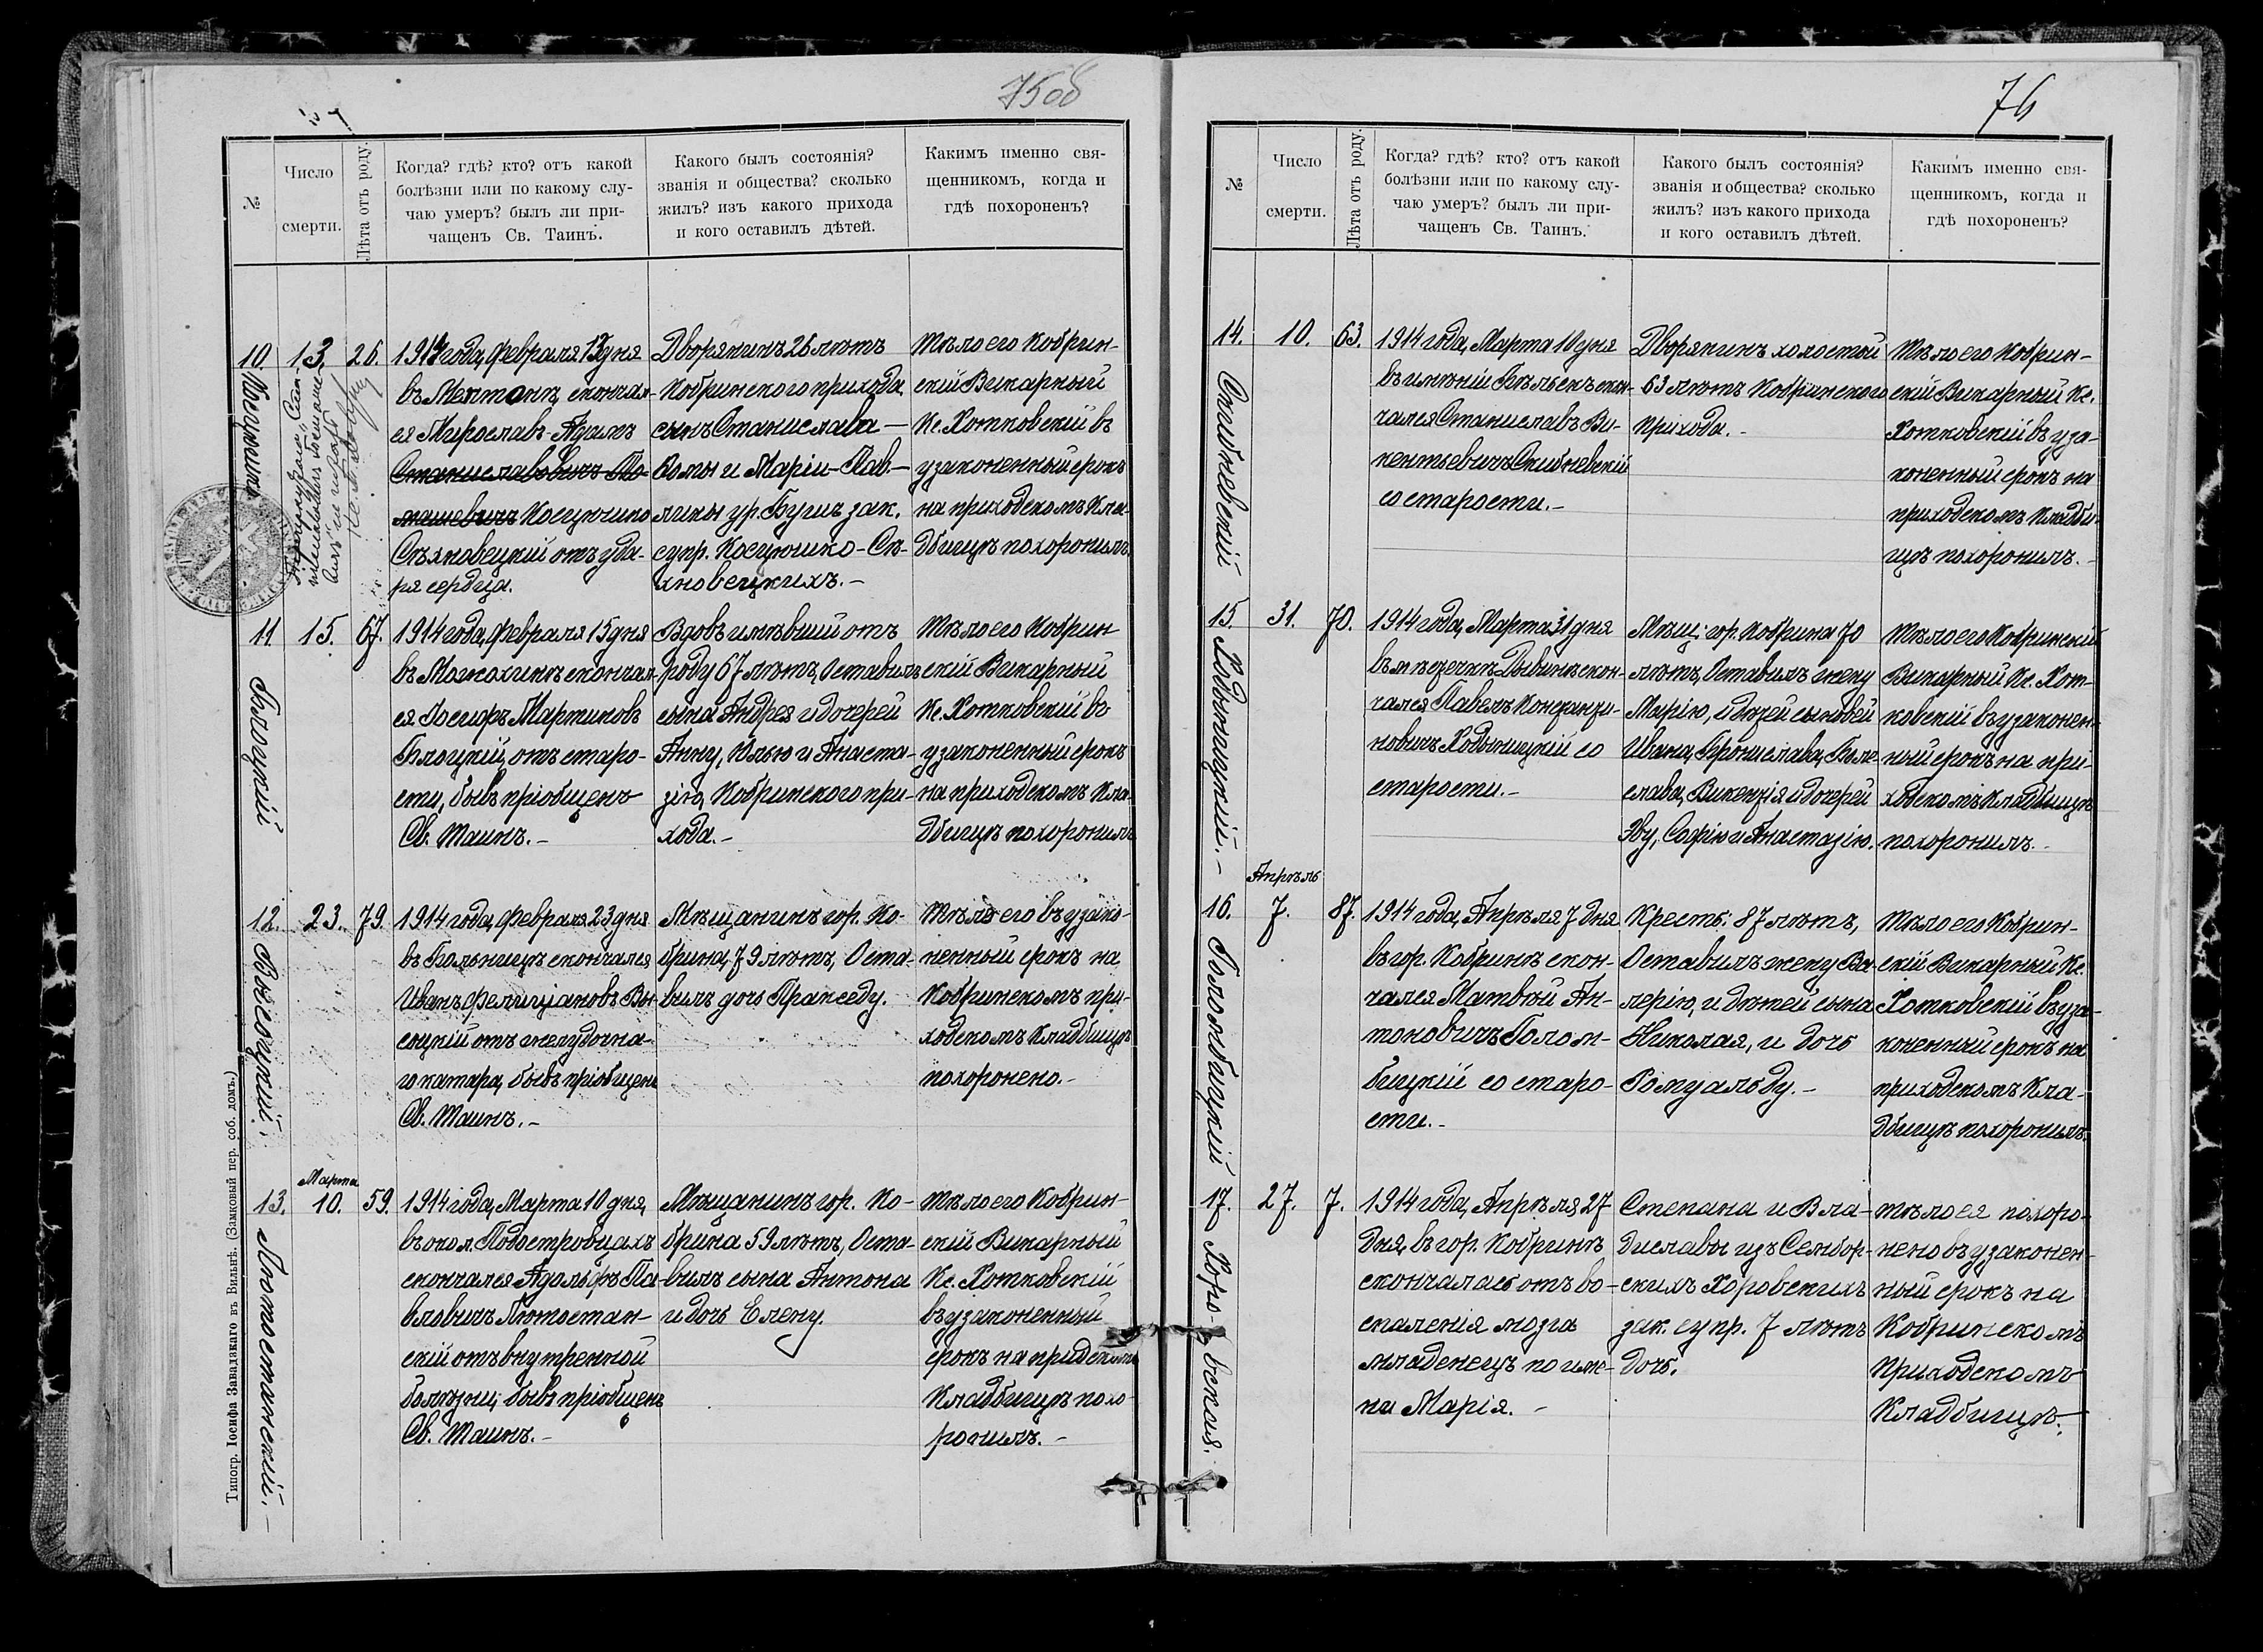 75об
№
Число
смерти.
Лѣта отъ роду.
Когда? гдѣ? кто? отъ какой
болѣзни или по какому слу-
чаю умеръ? былъ ли при-
чащенъ Св. Таинъ.
Какого былъ состоянія?
званія и общества? сколько
жилъ? изъ какого прихода
и кого оставилъ дѣтей.
Каким именно свя-
щенникомъ, когда и
гдѣ похороненъ?
10.
Косцюшко
13.
26.
1914 года, Февраля 13 дня
въ скончал-
ся Мирославъ-Адамъ
Станиславовичъ-То-
машевичъ Косцюшко
Сѣхновецкій отъ уда-
ра сердца.
Дворянинъ 26 лѣтъ
Кобринского прихода,
сынъ Станислава—
Ѳомы и Маріи-Пав-
лины ур. Бушъ зак.
супр. Косцюшко-Сѣ-
хновецкихъ.-
Тѣло его Кобрин-
скій Викарный
Кс. Хотковскій въ
узаконенный срокъ
на приходскомъ Кла-
дбищѣ похоронилъ.
11.
Блоцкій
15.
67.
1914 года, Февраля 15 дня
скончал-
ся Іосифъ Мартиновъ
Блоцкій, отъ старо-
сти, бывъ пріобщенъ
Св. Таинъ.-
Вдовъ имѣвшій отъ
роду 67 лѣтъ, Оставилъ
сына Андрея и дочерей
Анну, Юлью и Анаста-
зію, Кобринского при-
хода.-
Тѣло его Кобрин
скій Викарный
Кс. Хотковскій во
узаконенный срокъ
на приходскомъ Кла-
дбищѣ похоронилъ
12.
Высоцкій.
23.
79.
1914 года, Февраля 23 дня
въ Больницѣ скончался
Иванъ Фелиціановъ Вы-
соцкій отъ желудочна-
го катара, бывъ пріобщенъ
Св. Таинъ.-
Мѣщанинъ гор. Ко-
брина, 79 лѣтъ, Оста-
вилъ дочь Пракседу.
Тѣло его въ узако-
ненный срокъ на
Кобринскомъ при-
ходскомъ Кладбищѣ
похоронено.-
13.
Лютостанскій.-
Марта
10.
59.
1914 года, Марта 10 дня,
въ окол. Подостровцахъ
скончался Адольфъ Па-
вловичъ Лютостан-
скій отъ внутренной
болѣзни, бывъ пріобщенъ
Св. Таинъ.-
Мѣщанинъ гор. Ко-
брина 59 лѣтъ, Оста-
вилъ сына Антона
и дочь Елену.
тѣло его Кобрин-
скій Викарный
Кс. Хотковскій
въ узаконенный
срокъ на
Кладбищѣ похо-
ронилъ.-
Типогр. Іосифа Завадзкаго въ Вильнѣ. (Замковый пер. соб. домъ.)
76
№
Число
смерти.
Лѣта отъ роду.
Когда? гдѣ? кто? отъ какой
болѣзни или по какому слу-
чаю умеръ? былъ ли при-
чащенъ Св. Таинъ.
Какого былъ состоянія?
званія и общества? сколько
жилъ? изъ какого прихода
и кого оставилъ дѣтей.
Какимъ именно свя-
щенникомъ, когда и
гдѣ похороненъ?
14.
Скибневскій
10.
63.
1914 года, Марта 10 дня
въ имѣніи скон-
чался Станиславъ Ви-
кентьевичъ Скибневскій
со старости.-
Дворянинъ холостой
63 лѣтъ Кобринского
прихода.-
Тѣло его Кобрин-
скій Викарный Кс.
Хотковскій въ уза-
коненный срокъ на
приходскомъ Кладби-
щѣ похоронилъ.-
15.
Ходыницкій.-
31.
70.
1914 года, Марта 31 дня
въ мѣстечкѣ Дывинѣ скон-
чался Павелъ
Ходыницкій со
старости.-
Мѣщ: гор. Кобрина 70
лѣтъ, Оставилъ жену
Марію, и дѣтей сыновей
Ивана, Бронислава, Боле-
слава, Викентія и дочерей
Эву, Софію и Анастазію.
Тѣло его Кобринскій
Викарный Кс. Хот-
ковскій въ узаконен-
ный срокъ на при-
ходскомъ Кладбищѣ
похоронилъ.-
Апрѣль
16.
Голомбицкій
7.
87.
1914 года, Апрѣля 7 дня
въ гор. Кобринѣ скон-
чался Матвѣй Ан-
тоновичъ Голом-
бицкій со старо-
сти.-
Крест: 87 лѣтъ,
Оставилъ жену Ва-
лерію, и дѣтей сына
Николая, и дочь
Ромуальду.-
Тѣло его Кобрин-
скій Викарный Кс.
Хотковскій въ уза-
коненный срокъ на
приходскомъ Кла-
дбищѣ похоронилъ.
17.
Хоро-вская.
27.
7.
1914 года, Апрѣля 27
дня, въ гор. Кобринѣ
скончалась отъ во-
спаленія мозга
младенецъ по име-
ни Марія.-
Степана и Вла-
диславы изъ Сембор-
скихъ Хоровскихъ
зак. супр. 7 лѣтъ
дочь.
тѣло ея похоро-
нено въ узаконен-
ный срокъ на
Кобринскомъ
Приходскомъ
Кладбищѣ.